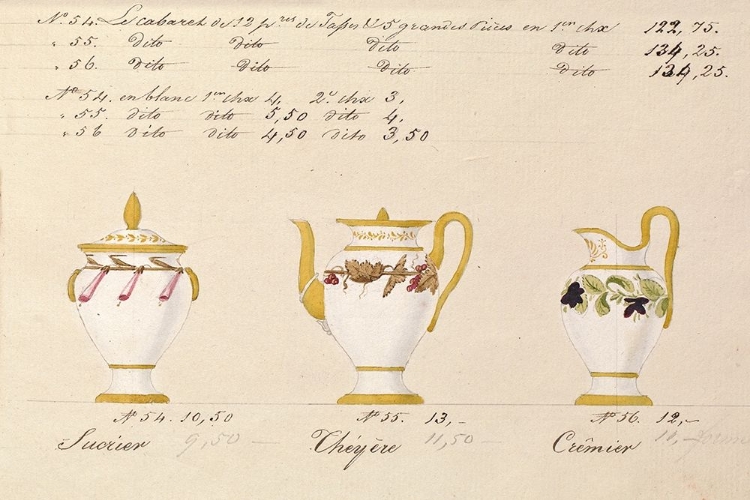 No. 54. Le cabaret de 12 pres de Tasses & 5 grandes Pièces en 1er chx 122, 75.
" 55. Dito Dito Dito Dito 134, 25.
" 56. Dito Dito Dito Dito 134, 25.
No. 54. en blanc 1er chx 4, 2d chx 3,
" 55. dito dito 5,50 dito 4,
" 56 dito dito 4,50 dito 3,50
No. 54. 10,50 No. 55. 13,- No. 56. 12,-
Sucrier 9,50 - Théyère 11,50 - Crêmier 11,-